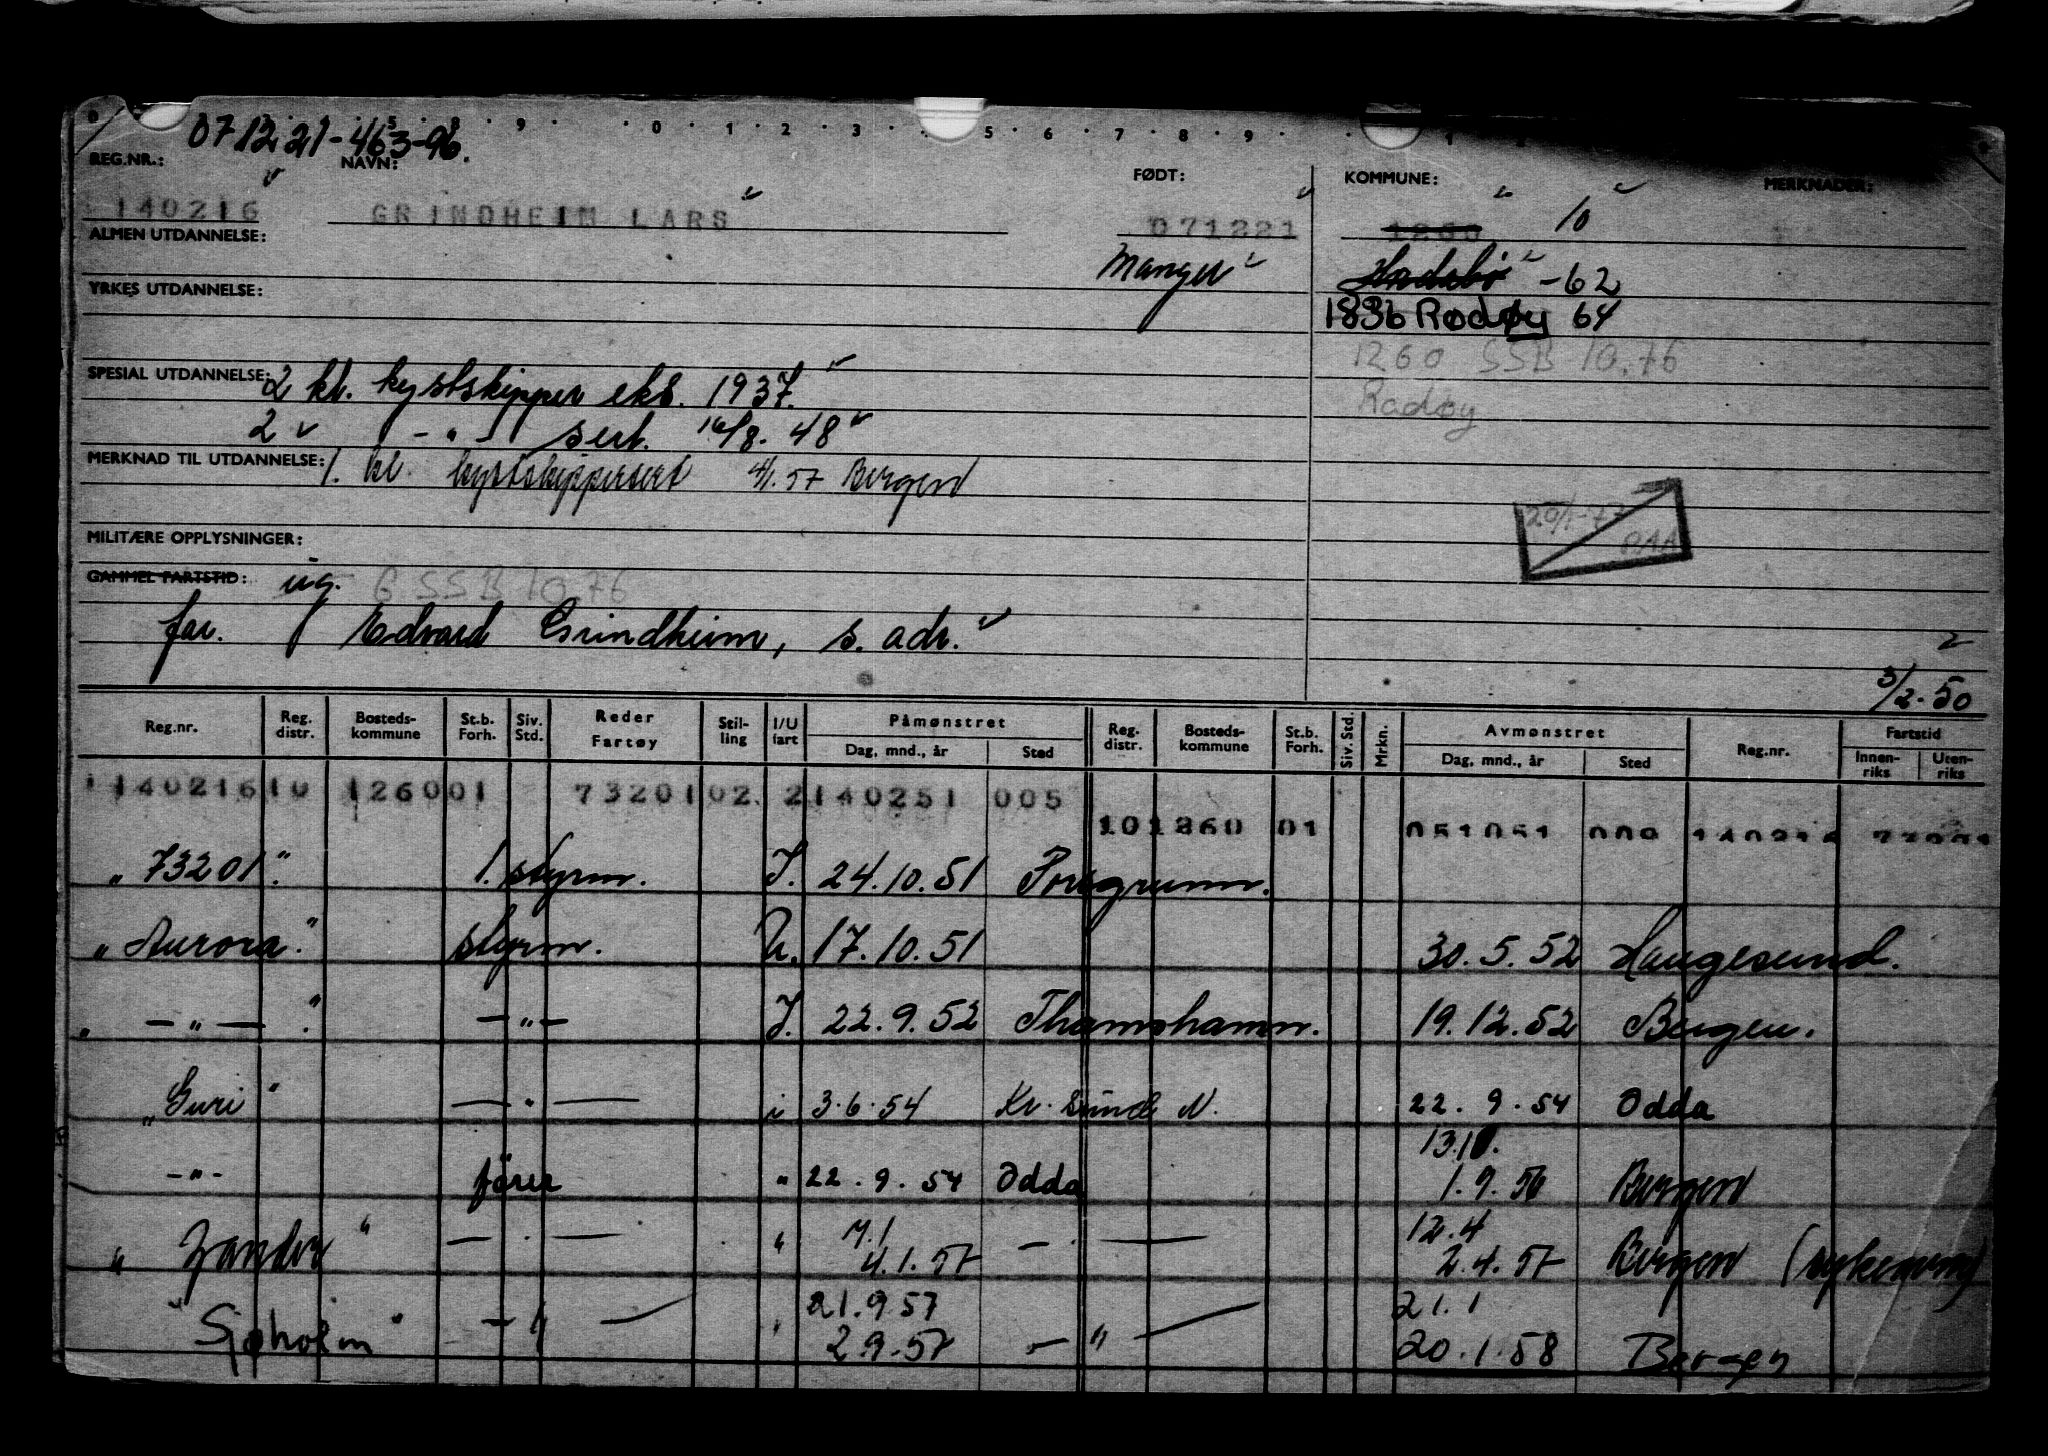 071221-46396.
REG.NR.: NAVN: FØDT: KOMMUNE: MERKNADER:
140216 GRINDHEIM LARS 071221 1260 10
ALMEN UTDANNELSE:
Manger -62
YRKES UTDANNELSE:
1836 Rødøy 64
1260 SSB 10.76
Radøy
SPESIAL UTDANNELSE: 2 kl. kystskipper eks. 1937.
2 -"- sert. 16/8. 48
MERKNAD TIL UTDANNELSE: 1. kl. kystskippersert 4/1. 57 Bergen
20/1-77
MILITÆRE OPPLYSNINGER:
GAMMEL FARTSTID: ug. 6 SSB 10.76
far. Edvard Grindheim, s. adr.
3/2-50
Reg.nr. Reg. distr. Bosteds-kommune St.b. Forh. Siv. Std. Reder Fartøy Stil-ling I/U fart Påmønstret Dag, mnd., år Sted Reg. distr. Bosteds-kommune St.b. Forh. Siv. Std. Mrkn. Avmønstret Dag, mnd., år Sted Reg.nr. Fartstid Innen-riks Uten-riks
114021610 126001 7320102 2140251 005
101260 01 051051 009
"73201" 1. styrm. I. 24.10.51 Porsgrunn.
"Aurora" styrm. U. 17.10.51 30.5.52 Haugesund.
" -"- " -"- I. 22.9.52 Thamshamn. 19.12.52 Bergen.
"Guri" -"- i 3.6.54 Kr. Sund N. 22.9.54 Odda
-"- fører " 22.9.54 Odda 13.10. 1.9.56 Bergen
"Zander" -"- " 4.1.57 -"- 12.4 2.4.57 Bergen
"Sjøholm" -"- " 21.9.57 2.9.57 -"- 21.1 20.1.58 Bergen